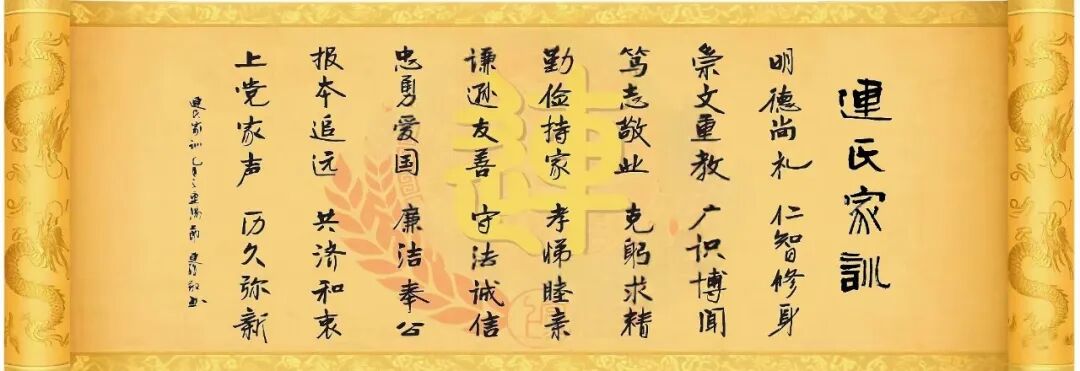 連氏家訓
明德尚礼 仁智修身
崇文重教 广识博闻
笃志敬业 克躬求精
勤俭持家 孝悌睦亲
谦逊友善 守法诚信
忠勇爱国 廉洁奉公
报本追远 共济和衷
上党家声 历久弥新
連氏家训
連